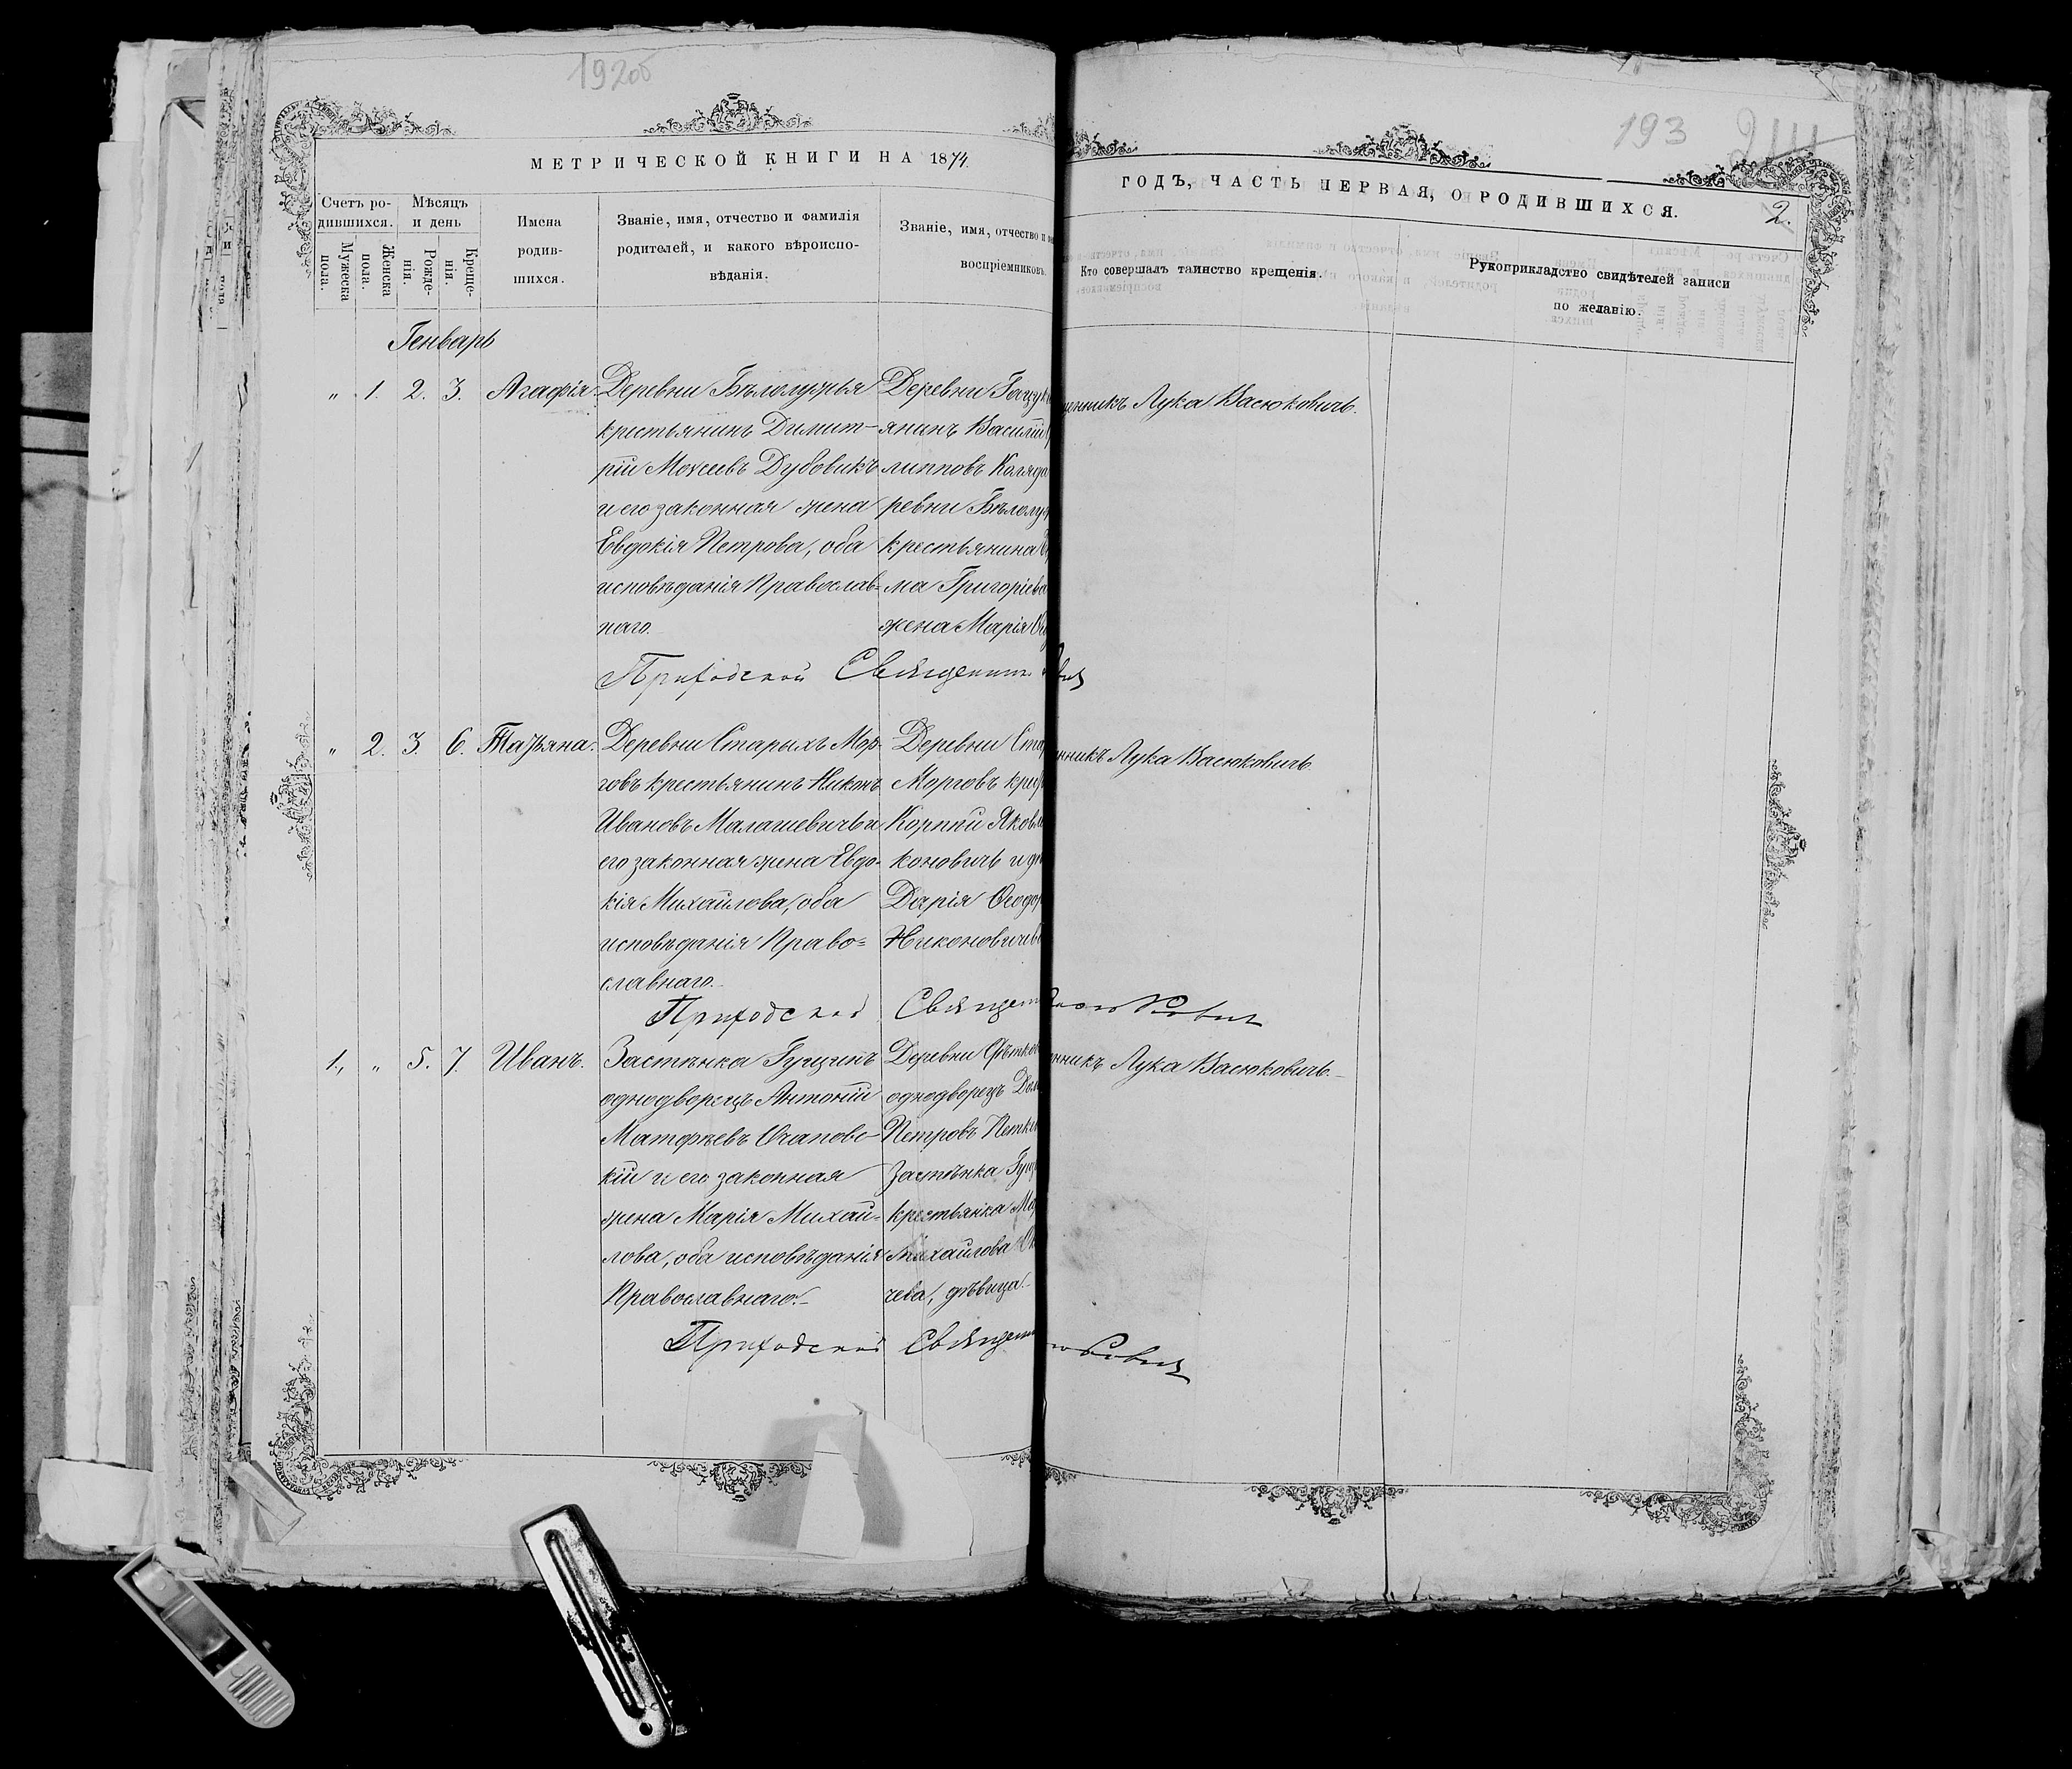 192об
193
МЕТРИЧЕСКОЙ КНИГИ НА 1874
ГОДЪ, ЧАСТЬ ПЕРВАЯ, О РОДИВШИХСЯ.
2.
Счетъ ро-
дившихся.
Мужеска
пола.
Женска
пола.
Мѣсяцъ
и день
Рожде-
нія.
Креще-
нія.
Имена
родив-
шихся.
Званіе, имя, отчество и фамилія
родителей, и какого вѣроиспо-
вѣданія.
Званіе, имя, отчество и
воспріемниковъ.
Кто совершалъ таинство крещенія.
Рукоприкладство свидѣтелей записи
по желанію.
Генварь
" 1. 2. 3. Агафія.
Деревни Бѣлолужья
крестьянинъ Димит-
рій Моѵсеевъ Дубовикъ
и его законная жена
Евдокія Петрова, оба
исповѣданія Православ-
наго.
Деревни
янинъ Василій
липповъ Коляда
ревни Бѣлолу
крестьянина
ма Григоріева
жена Марія
енникъ Лука Васюковичъ.
Приходской Священник
" 2. 3. 6. Татьяна.
Деревни Старыхъ Мор-
говъ крестьянинъ Никонъ
Ивановъ Малашевичъ и
его законная жена Евдо-
кія Михайлова, оба
исповѣданія Право-
славнаго.
Деревни Стар
Морговъ крес
Корпій Яковл
коновичъ и
Дарія Ѳеодор
Никоновичева
нникъ Лука Васюковичъ.
Приходской Священ
1. " 5. 7. Иванъ.
Застѣнка Гущинъ
однодворецъ Антоній
Матфѣевъ Очаповс-
кій и его законная
жена Марія Михай-
лова, оба исповѣданія
Православнаго.
Деревни
однодворецъ
Петровъ Петк
Застѣнка Гущ
крестьянка Ма
Михайлова
чева, дѣвица.
нникъ Лука Васюковичъ.
Приходской Священ